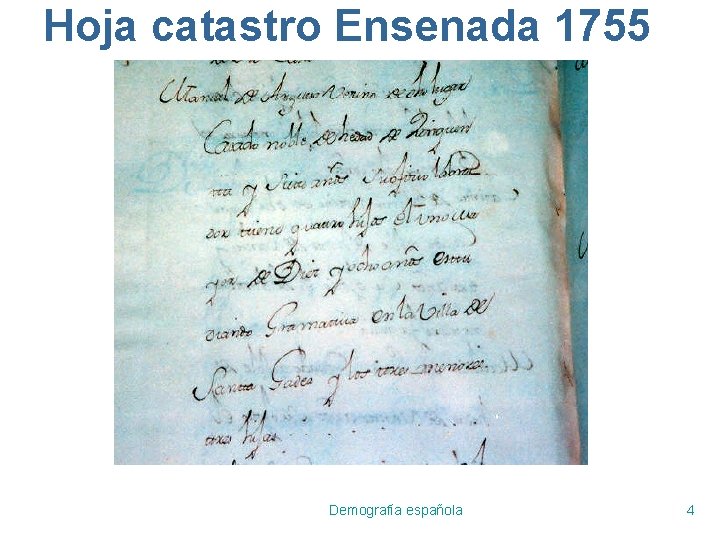 Hoja catastro Ensenada 1755
Manuel de Arguso Vecino de dho lugar
Casado noble de hedad de Zinquen
tta y Siete años Su ofizio labra
dor tiene quattro hijos el Uno ma
yor de Diez y ocho años estu
diando Gramatica en la Villa de
Santta Gadea y los ttres menores
ttres hijas
Demografía española
4